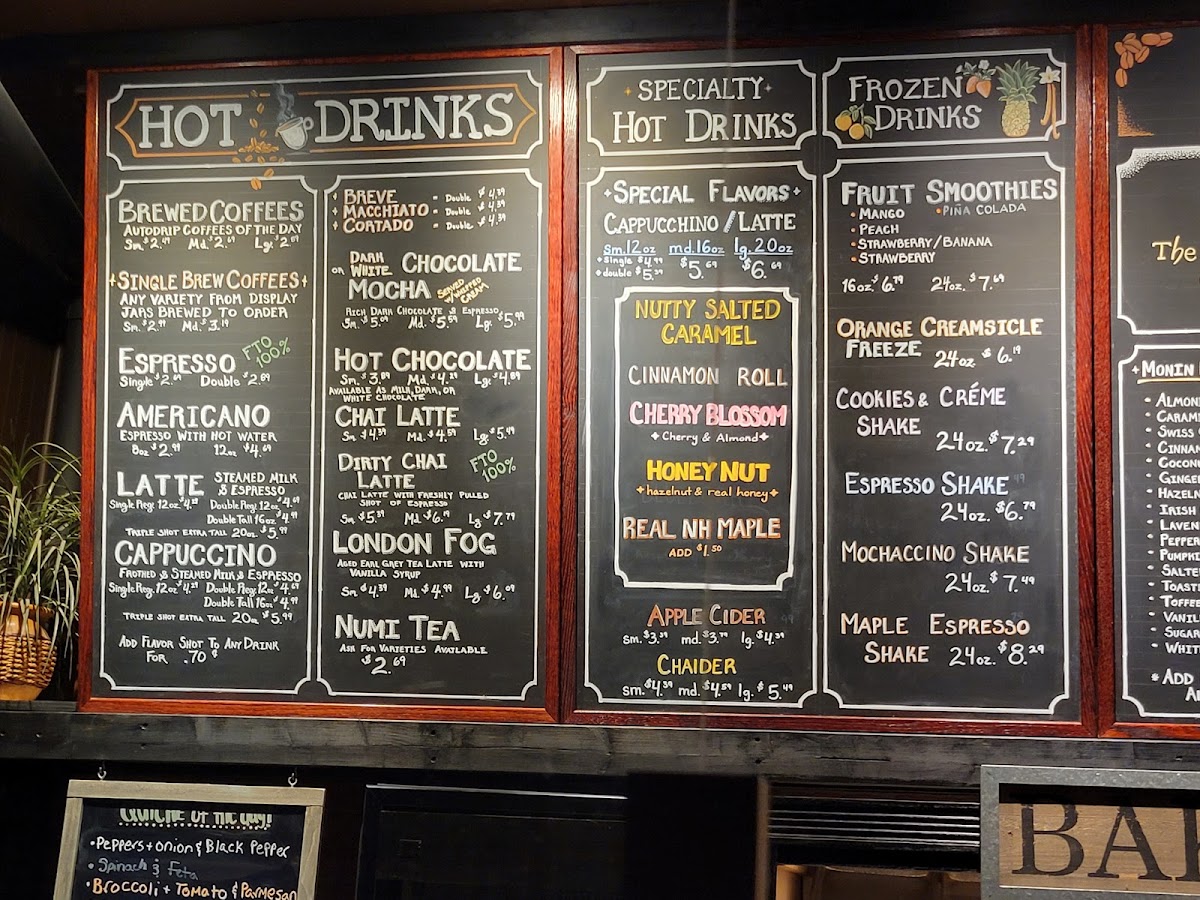 HOT DRINKS
BREWED COFFEES
AUTODRIP COFFEES OF THE DAY
Sm. $2.49 Md. $2.69 Lg. $2.89
SINGLE BREW COFFEES
ANY VARIETY FROM DISPLAY
JARS BREWED TO ORDER
Sm. $2.99 Md. $3.19
ESPRESSO FTO 100%
Single $2.09 Double $2.89
AMERICANO
ESPRESSO WITH HOT WATER
8oz $2.99 12oz $4.09
LATTE STEAMED MILK
& ESPRESSO
Single Reg. 12oz $4.29 Double Reg. 12oz $4.69
Double Tall 16oz $4.99
TRIPLE SHOT EXTRA TALL 20oz. $5.99
CAPPUCCINO
FROTHED & STEAMED MILK & ESPRESSO
Single Reg. 12oz $4.29 Double Reg. 12oz $4.69
Double Tall 16oz $4.99
TRIPLE SHOT EXTRA TALL 20oz $5.99
ADD FLAVOR SHOT TO ANY DRINK
FOR .70¢
BREVE = Double $4.39
MACCHIATO = Double $4.39
CORTADO = Double $4.39
DARK OR WHITE CHOCOLATE
MOCHA SERVED W/WHIPPED CREAM
RICH DARK CHOCOLATE & ESPRESSO
Sm. $5.09 Md. $5.59 Lg. $5.99
HOT CHOCOLATE
Sm. $3.89 Md. $4.29 Lg. $4.89
AVAILABLE AS MILK, DARK, OR
WHITE CHOCOLATE
CHAI LATTE
Sm $4.39 Md. $4.59 Lg. $5.49
DIRTY CHAI
LATTE FTO 100%
CHAI LATTE WITH FRESHLY PULLED
SHOT OF ESPRESSO
Sm. $5.39 Md $6.19 Lg $7.79
LONDON FOG
AGED EARL GREY TEA LATTE WITH
VANILLA SYRUP
Sm. $4.39 Md. $4.99 Lg. $6.09
NUMI TEA
ASK FOR VARIETIES AVAILABLE
$2.69
SPECIALTY
HOT DRINKS
SPECIAL FLAVORS
CAPPUCCHINO / LATTE
sm. 12oz md. 16oz lg. 20oz
single $4.99 $5.69 $6.69
double $5.39
NUTTY SALTED
CARAMEL
CINNAMON ROLL
CHERRY BLOSSOM
Cherry & Almond
HONEY NUT
hazelnut & real honey
REAL NH MAPLE
ADD $1.50
APPLE CIDER
sm. $3.39 md. $3.79 lg. $4.39
CHAIDER
sm. $4.39 md. $4.59 lg. $5.49
FROZEN
DRINKS
FRUIT SMOOTHIES
• MANGO • PIÑA COLADA
• PEACH
• STRAWBERRY/BANANA
• STRAWBERRY
16oz. $6.19 24oz. $7.69
ORANGE CREAMSICLE
FREEZE 24oz $6.19
COOKIES & CRÉME
SHAKE 24oz. $7.29
ESPRESSO SHAKE
24oz. $6.79
MOCHACCINO SHAKE
24oz. $7.49
MAPLE ESPRESSO
SHAKE 24oz. $8.29
The
MONIN
• ALMON
• CARAM
• SWISS
• CINNAM
• COCON
• GINGER
• HAZELN
• IRISH
• LAVEN
• PEPPER
• PUMPKI
• SALTE
• TOAST
• TOFFE
• VANIL
• SUGAR
• WHIT
* ADD
QUICHE of the day!
• Peppers + onion & Black Pepper
• Spinach & Feta
• Broccoli + Tomato & Parmesan
BA